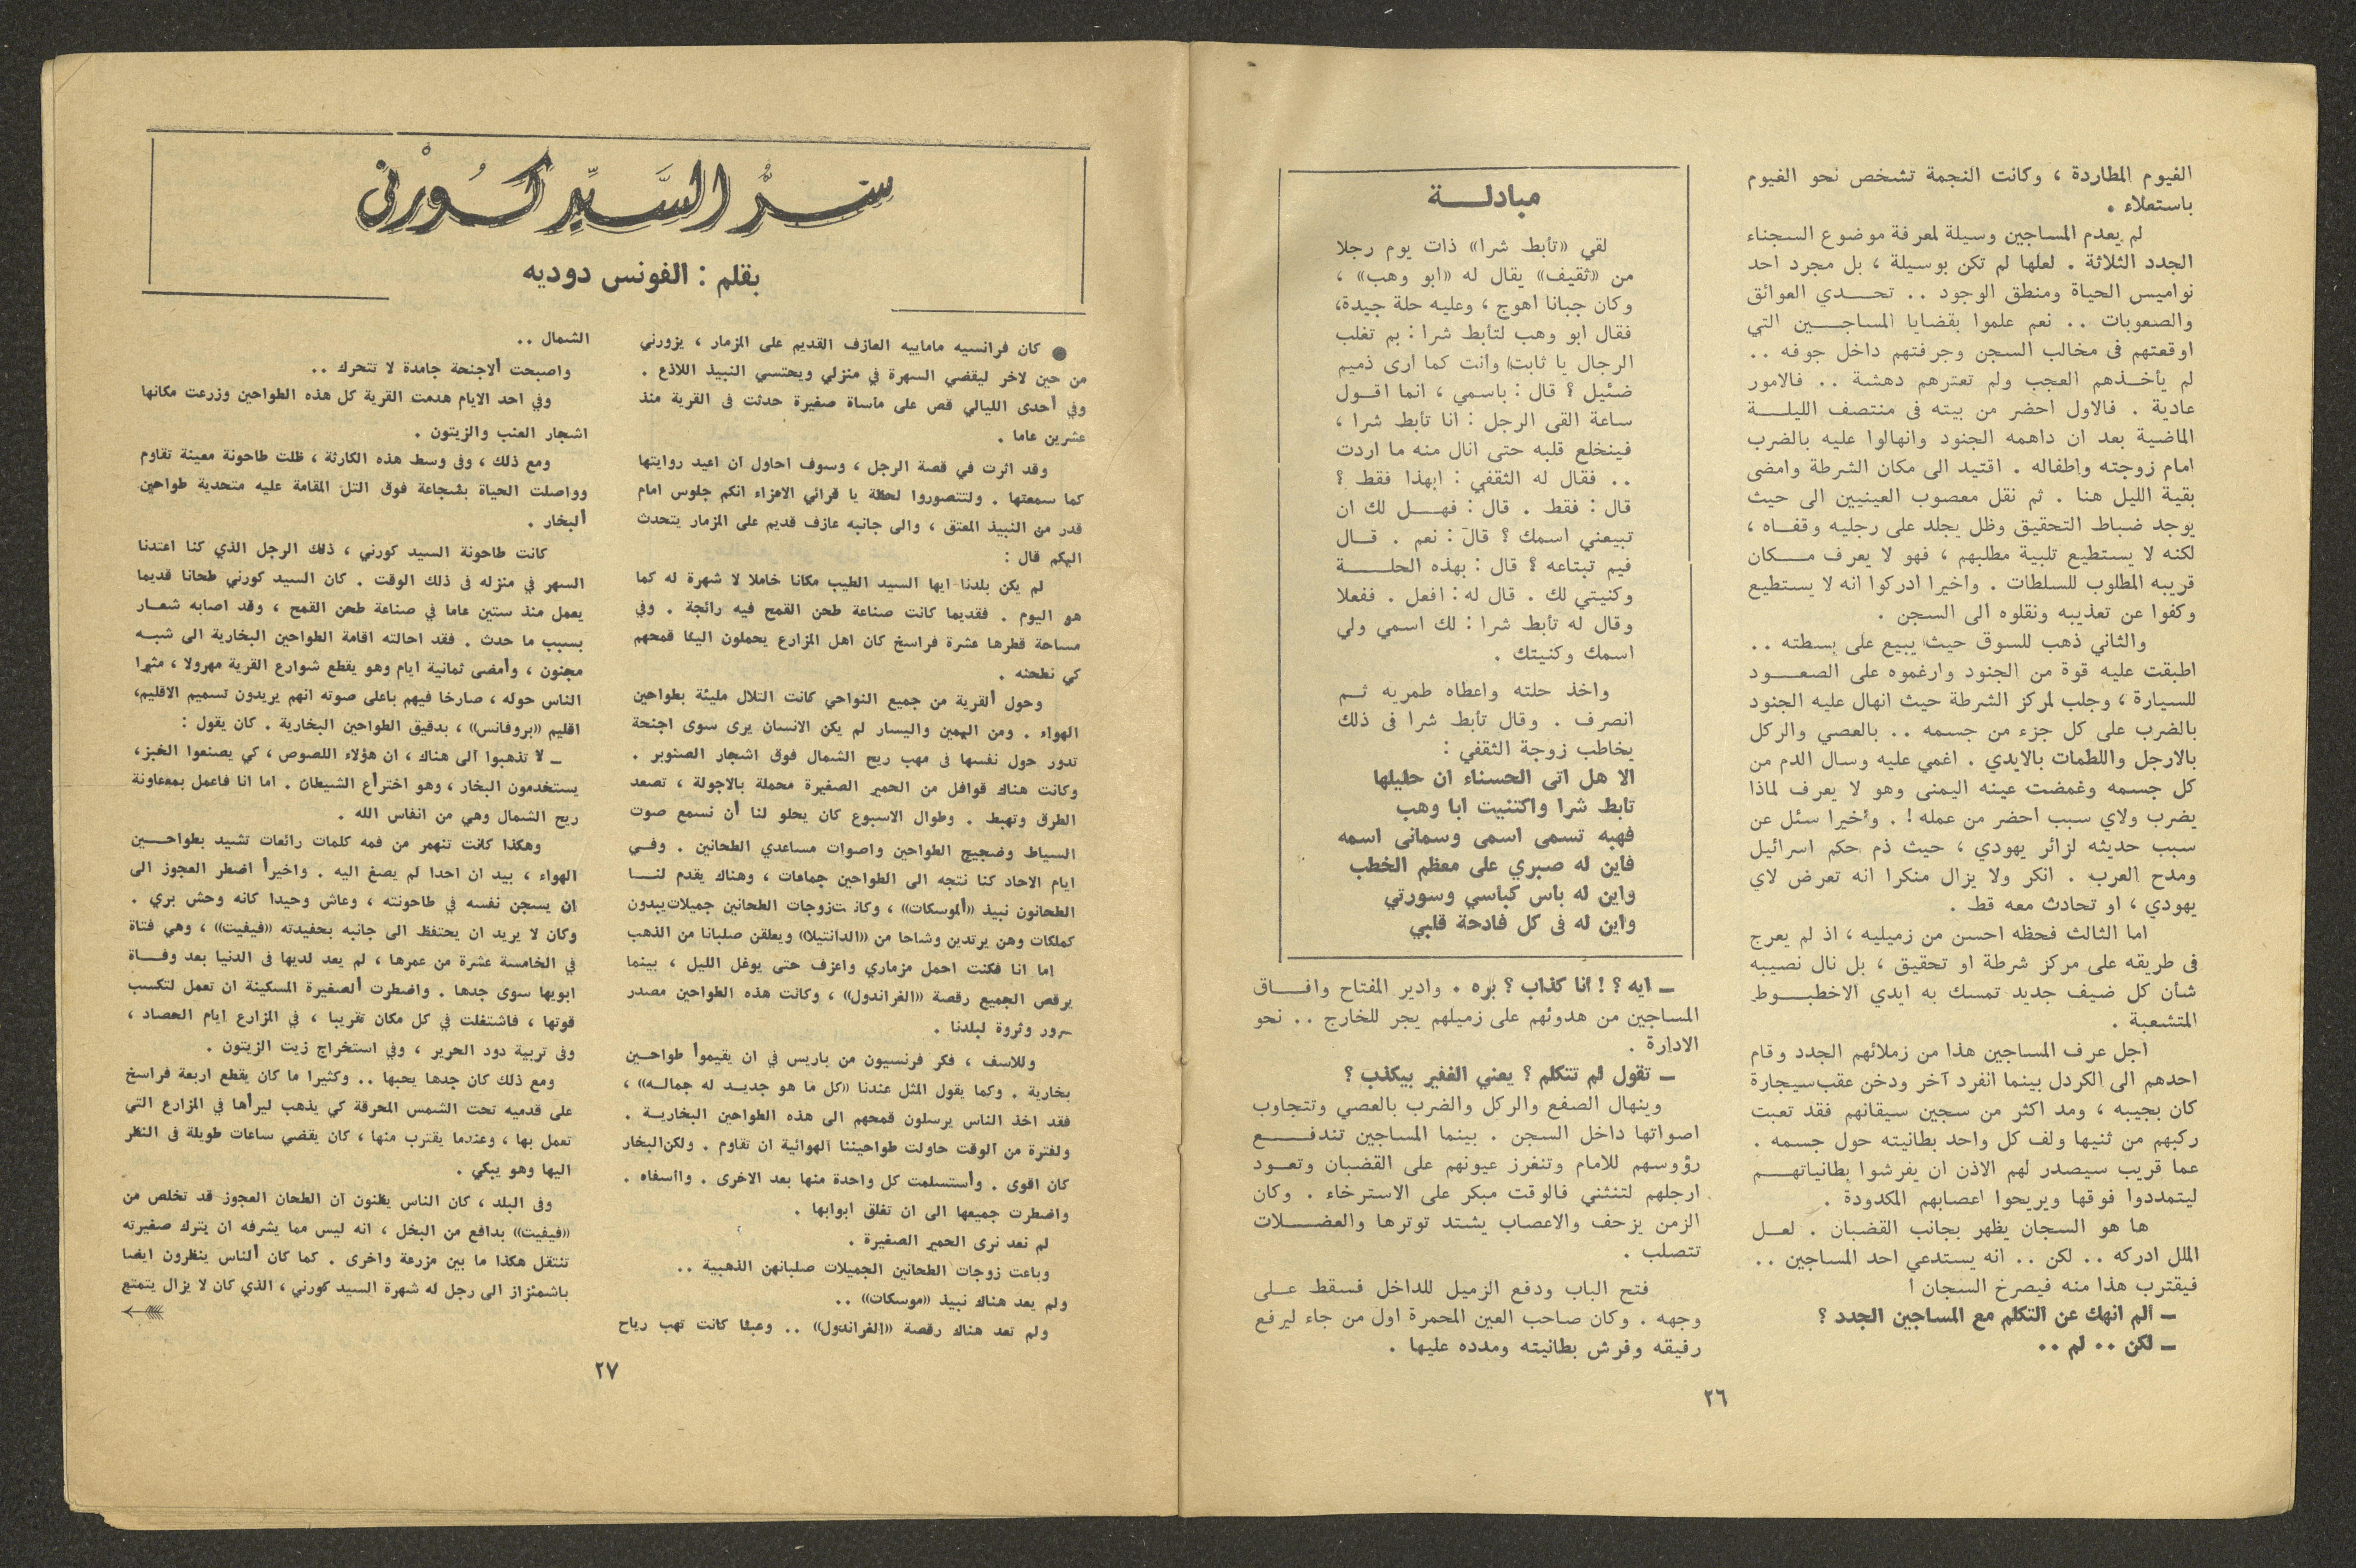 الغيوم المطاردة ، وكانت النجمة تشخص نحو الغيوم
باستعلاء .
لم يعدم المساجين وسيلة لمعرفة موضوع السجناء
الجدد الثلاثة . لعلها لم تكن بوسيلة ، بل مجرد احد
نواميس الحياة ومنطق الوجود .. تحدي العوائق
والصعوبات .. نعم علموا بقضايا المساجين التي
اوقعتهم فى مخالب السجن وجرفتهم داخل جوفه ..
لم يأخذهم العجب ولم تعترهم دهشة .. فالامور
عادية . فالاول احضر من بيته فى منتصف الليلة
الماضية بعد ان داهمه الجنود وانهالوا عليه بالضرب
امام زوجته واطفاله . اقتيد الى مكان الشرطة وامضى
بقية الليل هنا . ثم نقل معصوب العينيين الى حيث
يوجد ضباط التحقيق وظل يجلد على رجليه وقفاه ،
لكنه لا يستطيع تلبية مطلبهم ، فهو لا يعرف مكان
قريبه المطلوب للسلطات . واخيرا ادركوا انه لا يستطيع
وكفوا عن تعذيبه ونقلوه الى السجن .
والثاني ذهب للسوق حيث يبيع على بسطته ..
اطبقت عليه قوة من الجنود وارغموه على الصعود
للسيارة ، وجلب لمركز الشرطة حيث انهال عليه الجنود
بالضرب على كل جزء من جسمه .. بالعصي والركل
بالارجل واللطمات بالايدي . اغمي عليه وسال الدم من
كل جسمه وغمضت عينه اليمنى وهو لا يعرف لماذا
يضرب ولاي سبب احضر من عمله ! . وأخيرا سئل عن
سبب حديثه لزائر يهودي ، حيث ذم حكم اسرائيل
ومدح العرب . انكر ولا يزال منكرا انه تعرض لاي
يهودي ، او تحادث معه قط .
اما الثالث فحظه احسن من زميليه ، اذ لم يعرج
فى طريقه على مركز شرطة او تحقيق ، بل نال نصيبه
شأن كل ضيف جديد تمسك به ايدي الاخطبوط
المتشعبة .
اجل عرف المساجين هذا من زملائهم الجدد وقام
احدهم الى الكردل بينما انفرد آخر ودخن عقب سيجارة
كان بجيبه ، ومد اكثر من سجين سيقانهم فقد تعبت
ركبهم من ثنيها ولف كل واحد بطانيته حول جسمه .
عما قريب سيصدر لهم الاذن ان يفرشوا بطانياتهم
ليتمددوا فوقها ويريحوا اعصابهم المكدودة .
ها هو السجان يظهر بجانب القضبان . لعل
الملل ادركه .. لكن .. انه يستدعي احد المساجين ..
فيقترب هذا منه فيصرخ السجان !
ـ ألم انهك عن التكلم مع المساجين الجدد ؟
ـ لكن .. لم ..
مبادلة
لقي «تأبط شرا» ذات يوم رجلا
من «ثقيف» يقال له «ابو وهب» ،
وكان جبانا اهوج ، وعليه حلة جيدة،
فقال ابو وهب لتأبط شرا : بم تغلب
الرجال يا ثابت) وانت كما ارى ذميم
ضئيل ؟ قال : باسمي ، انما اقول
ساعة القى الرجل : انا تأبط شرا ،
فينخلع قلبه حتى انال منه ما اردت
.. فقال له الثقفي : ابهذا فقط ؟
قال : فقط . قال : فهل لك ان
تبيعني اسمك ؟ قال : نعم . قال
فيم تبتاعه ؟ قال : بهذه الحلة
وكنيتي لك . قال له : افعل . ففعلا
وقال له تأبط شرا : لك اسمي ولي
اسمك وكنيتك .
واخذ حلته واعطاه طمريه ثم
انصرف . وقال تأبط شرا فى ذلك
يخاطب زوجة الثقفي :
الا هل اتى الحسناء ان حليلها
تابط شرا واكتنيت ابا وهب
فهبه تسمى اسمى وسمانى اسمه
فاين له صبري على معظم الخطب
واين له باس كباسي وسورتي
واين له فى كل فادحة قلبي
ـ ايه ؟ ! أنا كذاب ؟ بره . وادير المفتاح وافاق
المساجين من هدوئهم على زميلهم يجر للخارج .. نحو
الادارة .
ـ تقول لم تتكلم ؟ يعني الغفير بيكذب ؟
وينهال الصفع والركل والضرب بالعصي وتتجاوب
اصواتها داخل السجن . بينما المساجين تندفع
رؤوسهم للامام وتنغرز عيونهم على القضبان وتعود
ارجلهم لتنثني فالوقت مبكر على الاسترخاء . وكان
الزمن يزحف والاعصاب يشتد توترها والعضلات
تتصلب .
فتح الباب ودفع الزميل للداخل فسقط على
وجهه . وكان صاحب العين المحمرة اول من جاء ليرفع
رفيقه وفرش بطانيته ومدده عليها .
٢٦
سر السيد كورنى
بقلم : الفونس دوديه
● كان فرانسيه ماماييه العازف القديم على المزمار ، يزورني
من حين لاخر ليقضي السهرة في منزلي ويحتسي النبيذ اللاذع .
وفي أحدى الليالي قص على مأساة صغيرة حدثت فى القرية منذ
عشرين عاما .
وقد اثرت في قصة الرجل ، وسوف احاول ان اعيد روايتها
كما سمعتها . ولتتصوروا لحظة يا قرائي الاعزاء انكم جلوس امام
قدر من النبيذ المعتق ، والى جانبه عازف قديم على المزمار يتحدث
اليكم قال :
لم يكن بلدنا ايها السيد الطيب مكانا خاملا لا شهرة له كما
هو اليوم . فقديما كانت صناعة طحن القمح فيه رائجة . وفي
مساحة قطرها عشرة فراسخ كان اهل المزارع يحملون الينا قمحهم
كي نطحنه .
وحول ألقرية من جميع النواحي كانت التلال مليئة بطواحين
الهواء . ومن اليمين واليسار لم يكن الانسان يرى سوى اجنحة
تدور حول نفسها فى مهب ريح الشمال فوق اشجار الصنوبر .
وكانت هناك قوافل من الحمير الصغيرة محملة بالاجولة ، تصعد
الطرق وتهبط . وطوال الاسبوع كان يحلو لنا أن نسمع صوت
السياط وضجيج الطواحين واصوات مساعدي الطحانين . وفي
ايام الاحاد كنا نتجه الى الطواحين جماعات ، وهناك يقدم لنا
الطحانون نبيذ «ألموسكات» ، وكانت زوجات الطحانين جميلات يبدون
كملكات وهن يرتدين وشاحا من «الدانتيلا» ويعلقن صلبانا من الذهب
اما انا فكنت احمل مزماري واعزف حتى يوغل الليل ، بينما
يرقص الجميع رقصة «الغراندول» ، وكانت هذه الطواحين مصدر
سرور وثروة لبلدنا .
وللاسف ، فكر فرنسيون من باريس في ان يقيموأ طواحين
بخارية . وكما يقول المثل عندنا «كل ما هو جديد له جماله» ،
فقد اخذ الناس يرسلون قمحهم الى هذه الطواحين البخارية .
ولفترة من ألوقت حاولت طواحيننا الهوائية ان تقاوم . ولكن البخار
كان اقوى . وأستسلمت كل واحدة منها بعد الاخرى . وااسفاه .
واضطرت جميعها الى ان تغلق ابوابها .
لم نعد نرى الحمير الصغيرة .
وباعت زوجات الطحانين الجميلات صلبانهن الذهبية ..
ولم يعد هناك نبيذ «موسكات» ..
ولم تعد هناك رقصة «الغراندول» .. وعبثا كانت تهب رياح
الشمال ..
واصبحت ألاجنحة جامدة لا تتحرك ..
وفي احد الايام هدمت القرية كل هذه الطواحين وزرعت مكانها
اشجار العنب والزيتون .
ومع ذلك ، وفى وسط هذه الكارثة ، ظلت طاحونة معينة تقاوم
وواصلت الحياة بشجاعة فوق التل المقامة عليه متحدية طواحين
ألبخار .
كانت طاحونة السيد كورني ، ذلك الرجل الذي كنا اعتدنا
السهر في منزله فى ذلك الوقت . كان السيد كورني طحانا قديما
يعمل منذ ستين عاما في صناعة طحن القمح ، وقد اصابه شعار
بسبب ما حدث . فقد احالته اقامة الطواحين البخارية الى شبه
مجنون ، وأمضى ثمانية ايام وهو يقطع شوارع القرية مهرولا ، مثيرا
الناس حوله ، صارخا فيهم باعلى صوته انهم يريدون تسميم الاقليم،
اقليم «بروفانس» ، بدقيق الطواحين البخارية . كان يقول :
ـ لا تذهبوا الى هناك ، ان هؤلاء اللصوص ، كي يصنعوا الخبز،
يستخدمون البخار ، وهو اخترأع الشيطان . اما انا فاعمل بمعاونة
ريح الشمال وهي من انفاس الله .
وهكذا كانت تنهمر من فمه كلمات رائعات تشيد بطواحين
الهواء ، بيد ان احدا لم يصغ اليه . واخيرأ اضطر العجوز الى
ان يسجن نفسه في طاحونته ، وعاش وحيدا كانه وحش بري .
وكان لا يريد ان يحتفظ الى جانبه بحفيدته «فيفيت» ، وهي فتاة
في الخامسة عشرة من عمرها ، لم يعد لديها فى الدنيا بعد وفاة
ابويها سوى جدها . واضطرت ألصغيرة المسكينة ان تعمل لتكسب
قوتها ، فاشتغلت في كل مكان تقريبا ، في المزارع ايام الحصاد ،
وفى تربية دود الحرير ، وفي استخراج زيت الزيتون .
ومع ذلك كان جدها يحبها .. وكثيرا ما كان يقطع اربعة فراسخ
على قدميه تحت الشمس المحرقة كي يذهب ليرأها في المزارع التي
تعمل بها ، وعندما يقترب منها ، كان يقضي ساعات طويلة فى النظر
اليها وهو يبكي .
وفى البلد ، كان الناس يظنون ان الطحان العجوز قد تخلص من
«فيفيت» بدافع من البخل ، انه ليس مما يشرفه ان يترك صغيرته
تنتقل هكذا ما بين مزرعة واخرى . كما كان ألناس ينظرون ايضا
باشمئزاز الى رجل له شهرة السيد كورني ، الذي كان لا يزال يتمتع
٢٧